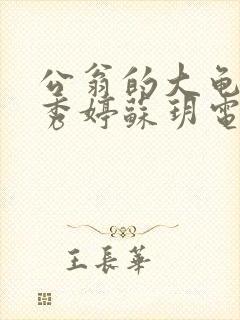 公翁的大龟
秀婷蘇玥電
王長華